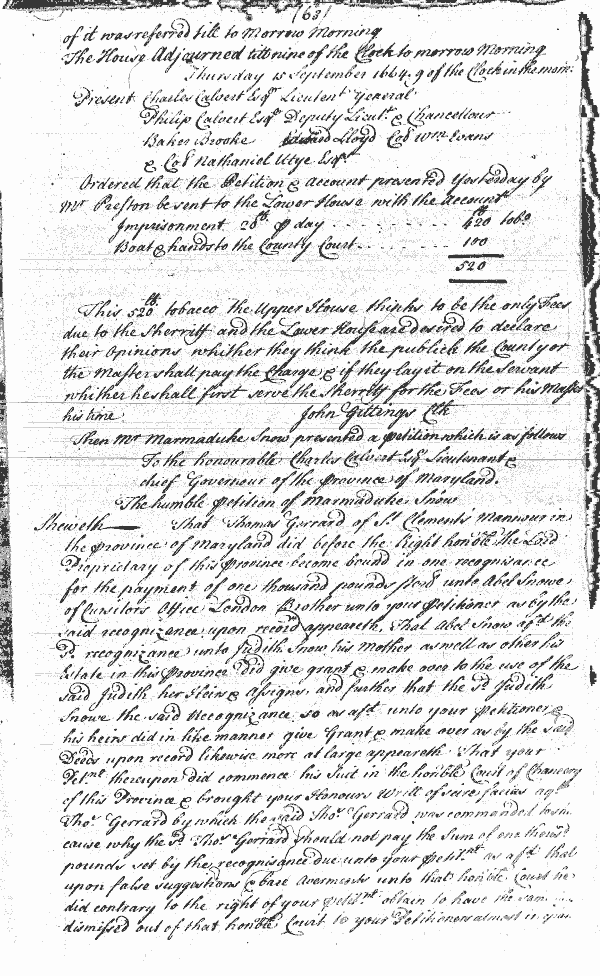 (63)
of it was referred till to Morrow Morning
The House Adjourned till nine of the Clock to morrow Morning
Thursday 15 September 1664. 9 of the Clock in the morn:
Present Charles Calvert Esqr Lieutent General
Philip Calvert Esqr Deputy Lieut. & Chancellour
Baker Brooke Edward Lloyd Coll Wm Evans
& Coll Nathaniel Utye Esqr
Ordered that the Petition & Account presented Yesterday by
Mr Preston be sent to the Lower House with the Account
Imprisonment 20th p day . . . . . . . . 420 tobo
Boat & hands to the County Court . . . . . . . . 100
520
This 520th tobacco the Upper House thinks to be the only Fees
due to the Sherriff and the Lower House are desired to declare
their Opinions whether they think the publick the County or
the Master shall pay the Charge & if they lay it on the Servant
whither he shall first serve the Sherriff for the Fees or his Master
his time John Gittings Clk
Then Mr Marmaduke Snow presented a petition which is as follows
To the honourable Charles Calvert Esqr Lieutenant &
chief Governour of the province of Maryland.
The humble Petition of Marmaduke Snow
Sheweth That Thomas Gerrard of St Clement's Mannour in
the province of Maryland did before the Right honble the Lord
Proprietary of this Province become bound in one recognisance
for the payment of one thousand pounds sterl unto Abel Snowe
of Cursitors Office London Brother unto your Petitioner as by the
said recognizance upon record appeareth, That Abel Snow afsd the
sd recognizance unto Judith Snow his Mother as well as other his
Estate in this Province did give grant & make over to the use of the
said Judith her Heirs & assigns, and further that the sd Judith
Snowe the said Recognizance so as afd unto your Petitioner &
his heirs did in like manner give Grant & make over as by the said
Deeds upon record likewise more at large appeareth That your
Petnr thereupon did commence his Suit in the honble Court of Chancery
of this Province & brought your Honours Writt of scire facias agst
Thos Gerrard by which the said Thos Gerrard was commanded to shew
cause why the sd Thos Gerrard should not pay the Sum of one thousd
pounds set by the recognisance due unto your Petitnr as afd that
upon false suggestions & base Averments unto that honble Court he
did contrary to the right of your petitnr obtain to have the same
dismissed out of that honble Court to your Petitioners almost